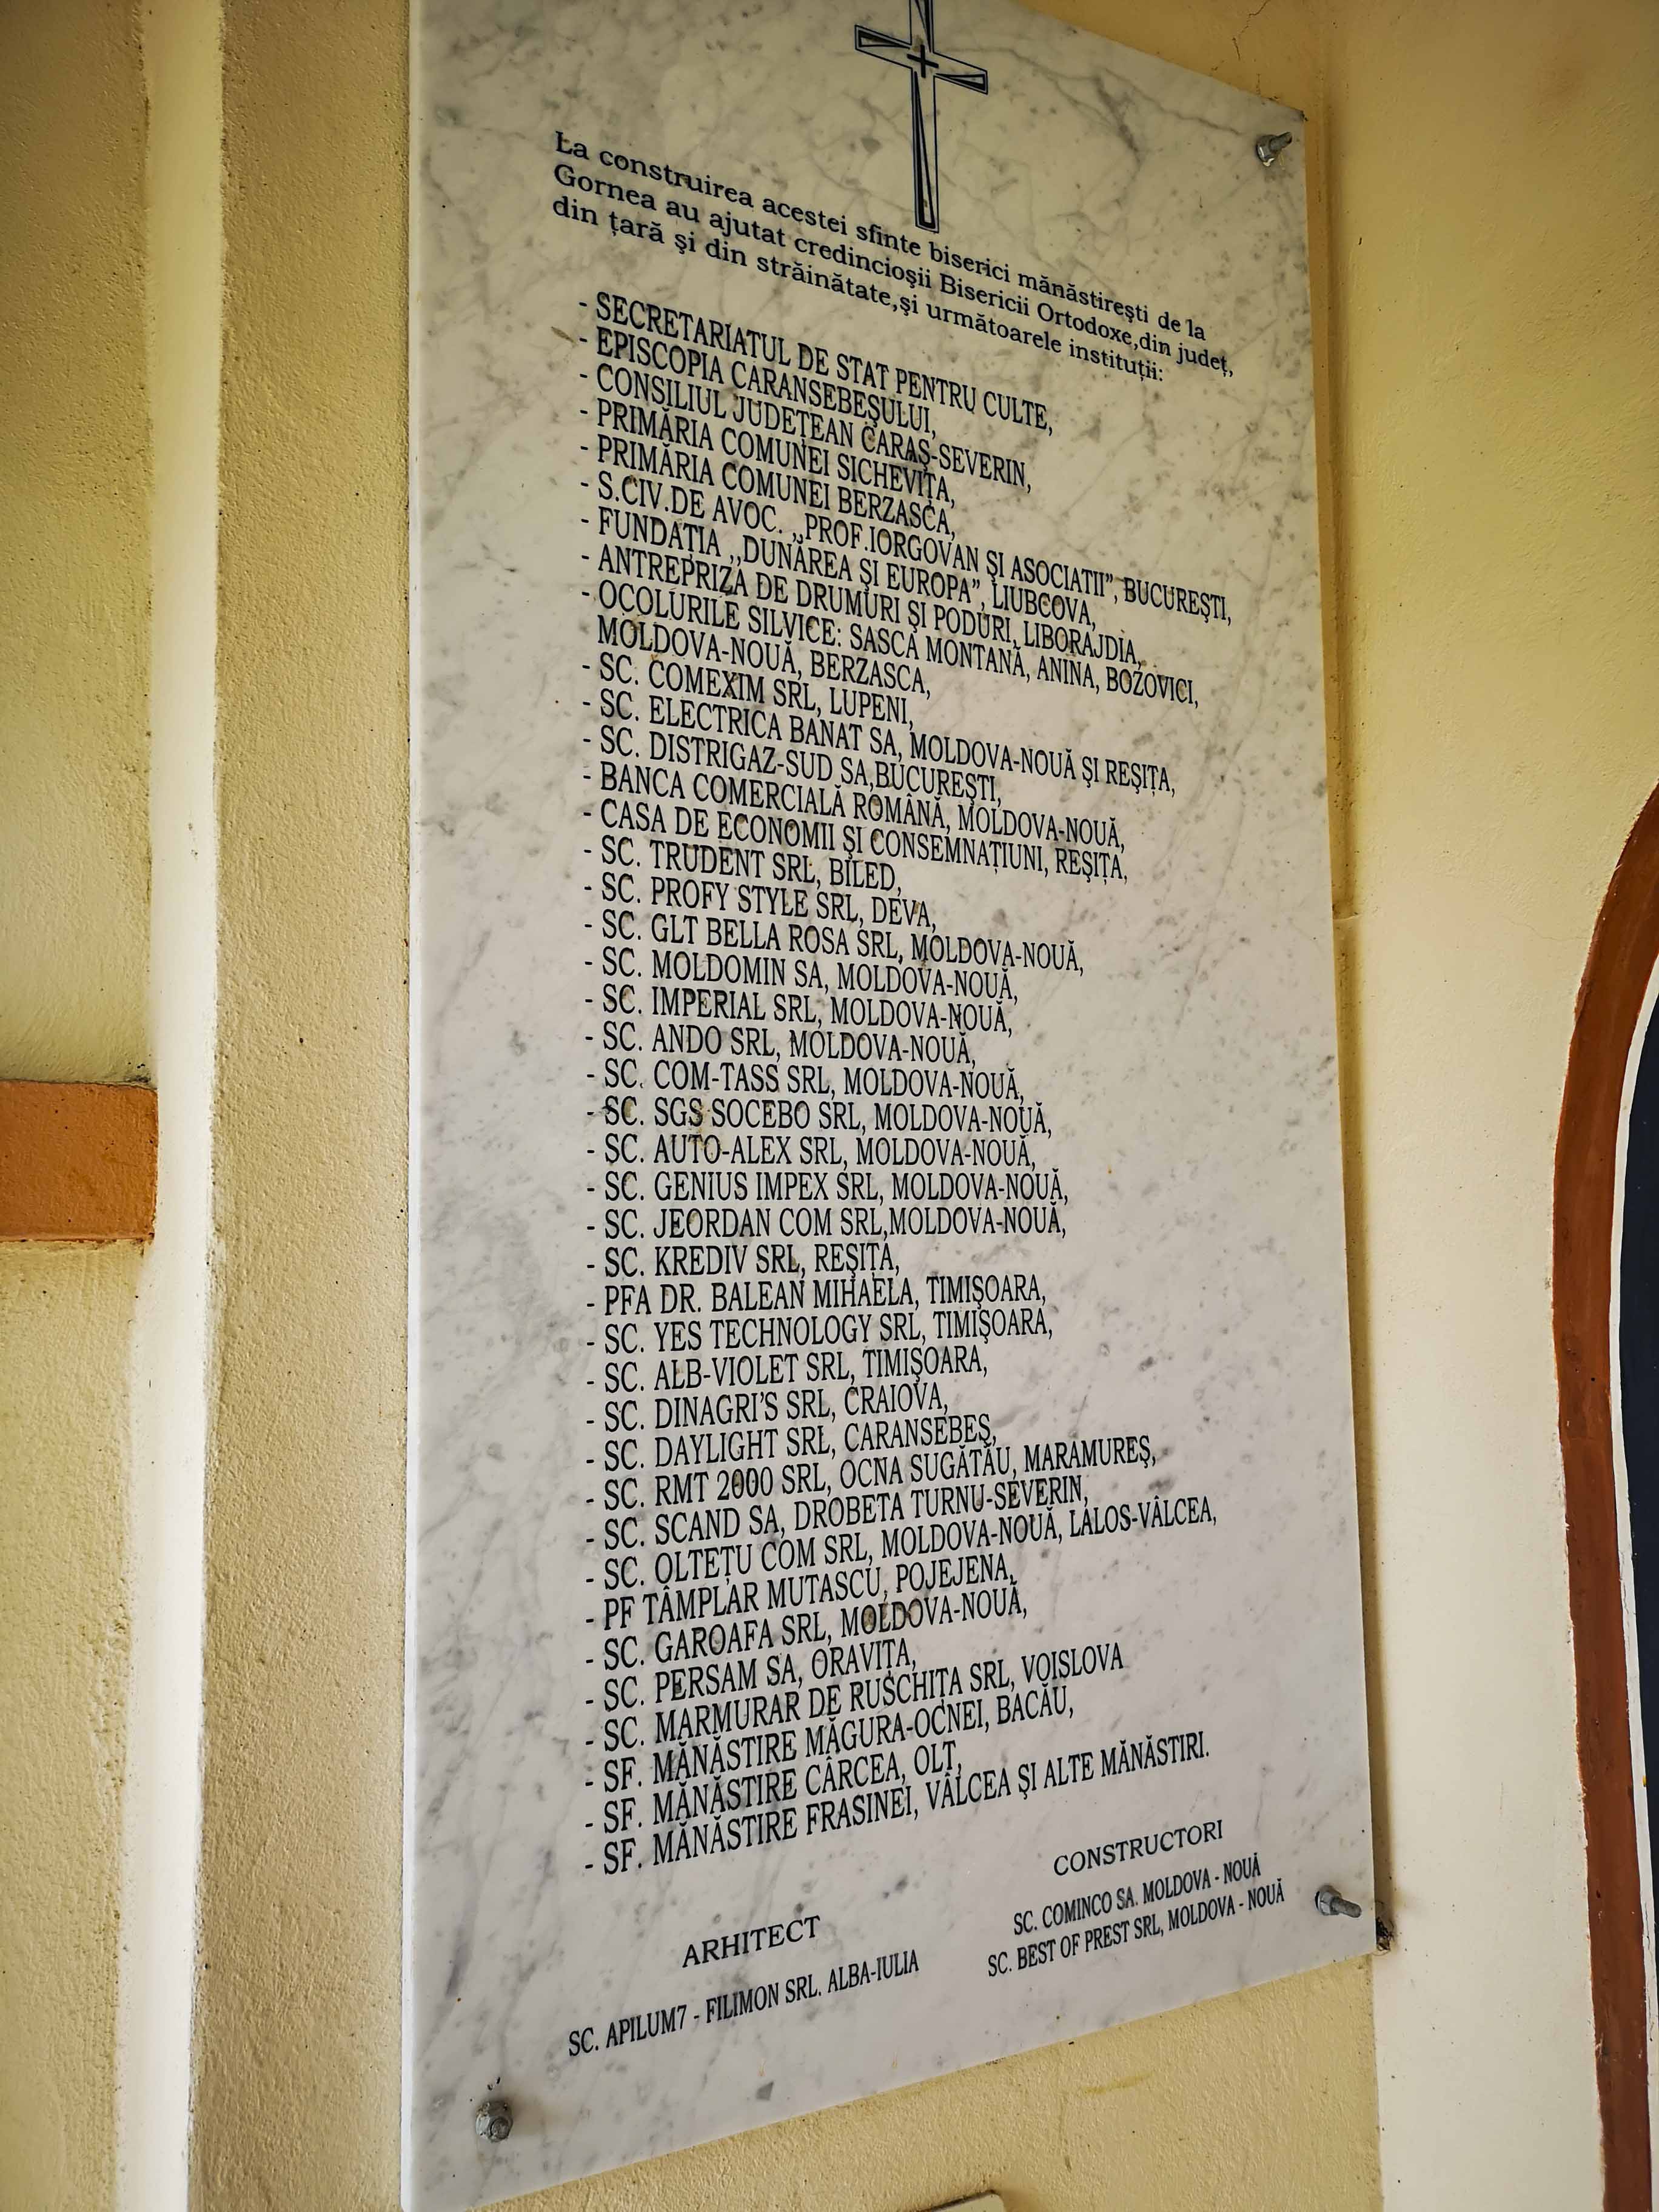 La construirea acestei sfinte biserici mănăstireşti de la
Gornea au ajutat credincioşii Bisericii Ortodoxe,din judeţ,
din ţară şi din străinătate,şi următoarele instituţii:
- SECRETARIATUL DE STAT PENTRU CULTE,
- EPISCOPIA CARANSEBEŞULUI,
- CONSILIUL JUDEŢEAN CARAŞ-SEVERIN,
- PRIMĂRIA COMUNEI SICHEVIŢA,
- PRIMĂRIA COMUNEI BERZASCA,
- S.CIV.DE AVOC. „PROF.IORGOVAN ŞI ASOCIATII”, BUCUREŞTI,
- FUNDAŢIA „DUNĂREA ŞI EUROPA”, LIUBCOVA,
- ANTREPRIZA DE DRUMURI ŞI PODURI, LIBORAJDIA,
- OCOLURILE SILVICE: SASCA MONTANĂ, ANINA, BOZOVICI,
MOLDOVA-NOUĂ, BERZASCA,
- SC. COMEXIM SRL, LUPENI,
- SC. ELECTRICA BANAT SA, MOLDOVA-NOUĂ ŞI REŞIŢA,
- SC. DISTRIGAZ-SUD SA,BUCUREŞTI,
- BANCA COMERCIALĂ ROMÂNĂ, MOLDOVA-NOUĂ,
- CASA DE ECONOMII ŞI CONSEMNAŢIUNI, REŞIŢA,
- SC. TRUDENT SRL, BILED,
- SC. PROFY STYLE SRL, DEVA,
- SC. GLT BELLA ROSA SRL, MOLDOVA-NOUĂ,
- SC. MOLDOMIN SA, MOLDOVA-NOUĂ,
- SC. IMPERIAL SRL, MOLDOVA-NOUĂ,
- SC. ANDO SRL, MOLDOVA-NOUĂ,
- SC. COM-TASS SRL, MOLDOVA-NOUĂ,
- SC. SGS SOCEBO SRL, MOLDOVA-NOUĂ,
- SC. AUTO-ALEX SRL, MOLDOVA-NOUĂ,
- SC. GENIUS IMPEX SRL, MOLDOVA-NOUĂ,
- SC. JEORDAN COM SRL,MOLDOVA-NOUĂ,
- SC. KREDIV SRL, REŞIŢA,
- PFA DR. BALEAN MIHAELA, TIMIŞOARA,
- SC. YES TECHNOLOGY SRL, TIMIŞOARA,
- SC. ALB-VIOLET SRL, TIMIŞOARA,
- SC. DINAGRI'S SRL, CRAIOVA,
- SC. DAYLIGHT SRL, CARANSEBEŞ,
- SC. RMT 2000 SRL, OCNA SUGĂTĂU, MARAMUREŞ,
- SC. SCAND SA, DROBETA TURNU-SEVERIN,
- SC. OLTEŢU COM SRL, MOLDOVA-NOUĂ, LALOS-VÂLCEA,
- PF TÂMPLAR MUTASCU, POJEJENA,
- SC. GAROAFA SRL, MOLDOVA-NOUĂ,
- SC. PERSAM SA, ORAVIŢA,
- SC. MARMURAR DE RUSCHIŢA SRL, VOISLOVA
- SF. MĂNĂSTIRE MĂGURA-OCNEI, BACĂU,
- SF. MĂNĂSTIRE CÂRCEA, OLT,
- SF. MĂNĂSTIRE FRASINEI, VÂLCEA ŞI ALTE MĂNĂSTIRI.
ARHITECT
SC. APILUM7 - FILIMON SRL. ALBA-IULIA
CONSTRUCTORI
SC. COMINCO SA. MOLDOVA - NOUĂ
SC. BEST OF PREST SRL, MOLDOVA - NOUĂ